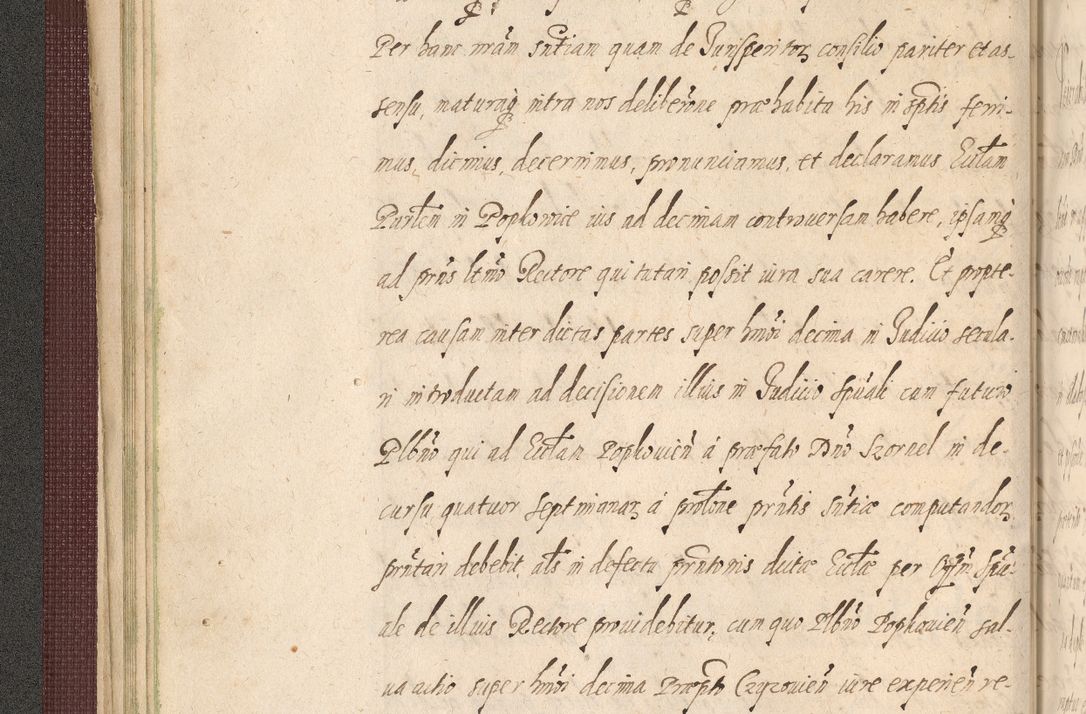 Per hanc nrãm sñtiam quam de Jurisperitorꝫ consilio pariter et as-
sensu, maturaq intra nos deliberõne præhabita his in sptis ferri-
mus, dicimus, decernimus, pronunciamus, et declaramus Ecclam
Parlem in Popkowice ius ad decimam controversam habere, ipsamq
ad prñs ltmõ Rectore qui tutari possit iura sua carere. Et propte-
rea causam inter dictas partes super hmõi decima in Judicio secula-
ri introductam ad decisionem illius in Judicio spũali cum futuro
Plbño qui ad Ecclam Popkovicñ á præfato Dño Szornel in de-
cursu quatuor septimanarꝫ á prolone prñtis sñtiæ computandorꝫ
prñtari debebit, als in defectu prñtonis dictæ Ecclæ per Offm Spũ-
ale de illius Rectore providebitur, cum quo Plbño Popkovicñ sal-
va actio super hmõi decima Præpto Czyzovicñ iure experieñ re-